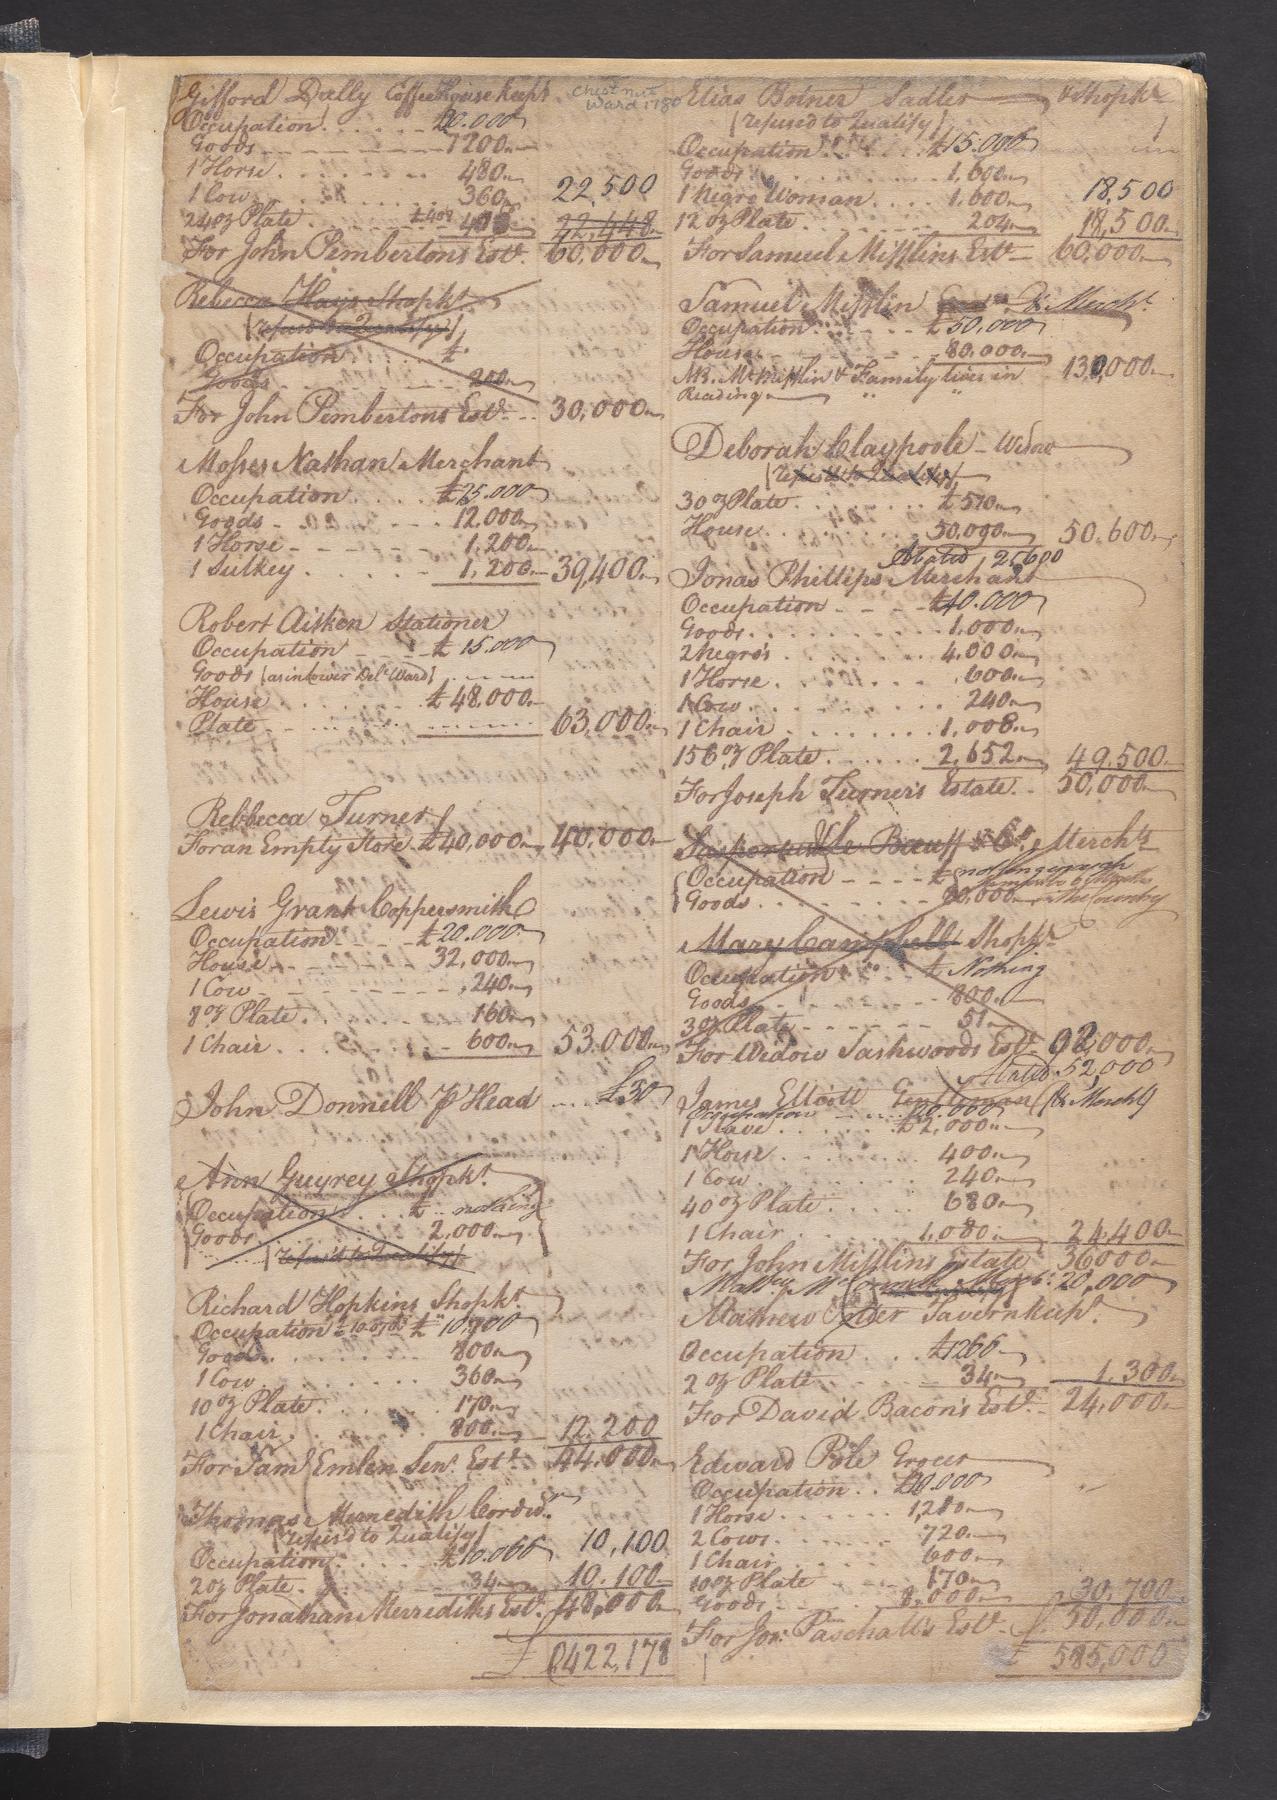 Gifford Dally Coffee House keepr
Occupation . . . . . £20.000
Goods 1200
1 Horse . . . . . . . . 480
1 Cow 360 22,500
24 oz Plate . . . £408 408 22,448
For John Pembertons Estt. 60,000
Rebecca Hays Shopkr.
(refused to Qualify)
Occupation . . . £
Goods 200
For John Pembertons Estt. 30,000
Moses Nathan Merchant
Occupation . . . . £25.000
Goods 12,000
1 Horse 1,200
1 Sulkey . . . . . 1,200 39,400
Robert Aitken Stationer
Occupation £15.000
Goods (as in Lower Dele Ward)
House . . . . . . £48,000
Plate 63,000
Rebbecca Turner
For an Empty Store £40,000 40,000
Lewis Grant Coppersmith
Occupation £20.000
House 32,000
1 Cow 240
8 oz Plate . . . . . 160
1 Chair . . . . . 600 53,000
John Donnell p Head £50
Ann Guyrey Shopkr.
Occupation . . . £ nothing
Goods 2,000
(refus'd to Qualify)
Richard Hopkins Shopkr.
Occupation £10.000
Goods . . . . . . . 800
1 Cow . . . . . . . 360
10 oz Plate . . . . . 170
1 Chair . . . . . . 800 12,200
For Saml Emlen Senr. Estt. 44,000
Thomas Merredith Cordwr.
(refus'd to Qualify) 10,100
Occupation . . . . £10.066
2 oz Plate 34 10,100
For Jonathan Merrediths Estt. 48,000
£ 422,178
Chestnut
Ward 1780
Elias Boiner Sadler & Shopkr
(refused to Qualify)
Occupation . . . . £15.000
Goods 1,600
1 Negro Woman . . . 1,600 18,500
12 oz Plate 204 18,500
For Samuel Mifflins Estt 60,000
Samuel Mifflin Mercht.
Occupation £50,000
House 80,000 130,000
Mr. Mifflin & Family lives in
Reading
Deborah Claypoole - Widow
(refused to Qualify)
30 oz Plate . . . . . . £510
House 50,090 50,600
Abated 25,600
Jonas Phillips Merchant
Occupation £40.000
Goods 1,000
2 Negro's 4,000
1 Horse . . . . . . . 600
1 Cow 240
1 Chair . . . . . . . 1,008
156 oz Plate . . . . . 2,652 49,500
For Joseph Turners Estate 50,000
& Co. Merchts
Occupation £
Goods . . . . . . . in the Country
Mary Campbell Shopkr
Occupation £ Nothing
Goods 800
3 oz Plate 51
For Widow Estt. 92,000
Abated 52,000
James Elliott Gentleman (& Mercht)
Occupation 20.000
1 Slave . . . . . £2,000
1 Horse . . . . . . . 400
1 Cow 240
40 oz Plate . . . . . 680
1 Chair 1,080 24,400
For John Mifflins Estate 36000
20,000
Mathew Tavernkeepr.
Occupation £1266
2 oz Plate 34 1,300
For David Bacons Estt. 24,000
Edward Pole Grocer
Occupation . . £20.000
1 Horse 1,200
2 Cows 720
1 Chair 600
10 oz Plate 170
Goods 8,000 30,700
For Jos. Paschalls Estt 50,000
£ 585,000